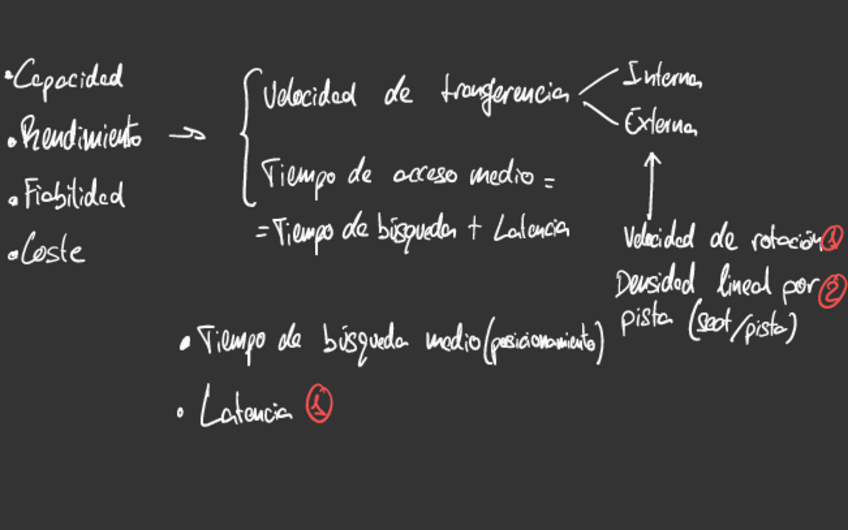 • Capacidad
• Rendimiento →
• Fiabilidad
• Coste
Velocidad de transferencia
Interna
Externa
Tiempo de acceso medio =
= Tiempo de búsqueda + Latencia
Velocidad de rotación ①
Densidad lineal por ②
pista (sect/pista)
• Tiempo de búsqueda medio (posicionamiento)
• Latencia ①